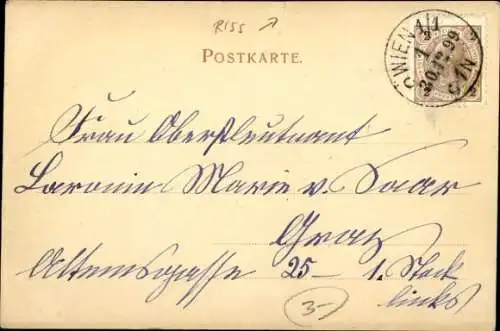 RISS
POSTKARTE.
WIEN 1/1
30.12.99
Frau Oberstleutnant
Baronin Marie v. Saar
Graz
25 - 1. Stock
links
3-